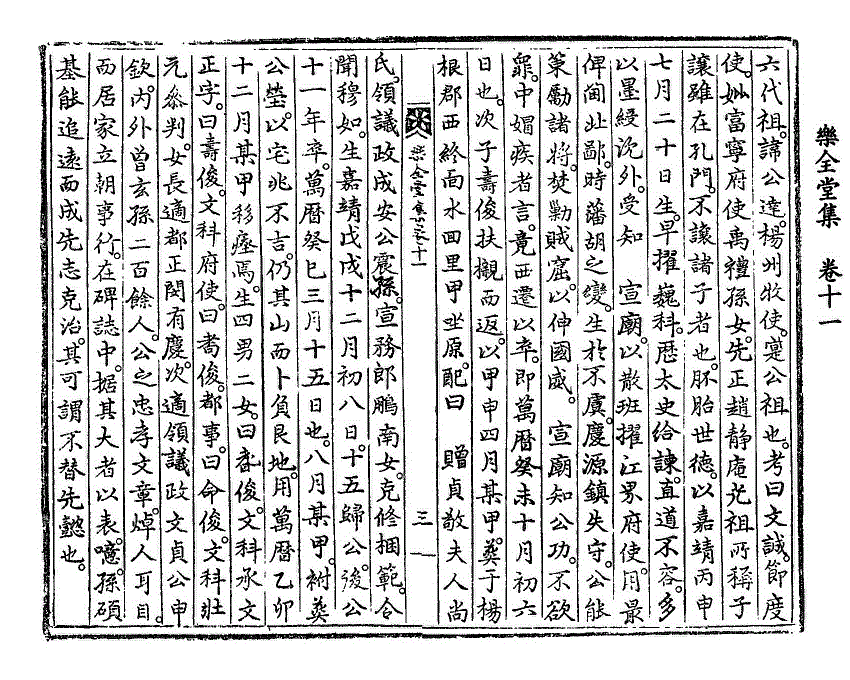 樂全堂集 卷十一
六代祖。諱公達。楊州牧使。寔公祖也。考曰文誠。節度
使。妣富寧府使禹禮孫女。先正趙靜庵光祖所稱子
讓雖在孔門。不讓諸子者也。胚胎世德。以嘉靖丙申
七月二十日生。早擢巍科。歷太史給諫。直道不容。多
以墨綬沉外。受知 宣廟。以散班擢江界府使。用最
俾閫北鄙。時藩胡之變。生於不虞。慶源鎭失守。公能
策勵諸將。焚勦賊窟。以伸國威。 宣廟知公功。不欲
罪。中媢疾者言。竟西遷以卒。卽萬曆癸未十月初六
日也。次子壽俊扶櫬而返。以甲申四月某甲。葬于楊
根郡西終面水回里甲坐原。配曰 贈貞敬夫人尙
樂全堂集卷十一
三
氏。領議政成安公震孫。宣務郞鵬南女。克修梱範。令
聞穆如。生嘉靖戊戌十二月初八日。十五歸公。後公
十一年卒。萬曆癸巳三月十五日也。八月某甲。祔葬
公塋。以宅兆不吉。仍其山而卜負艮地。用萬曆乙卯
十二月某甲移瘞焉。生四男二女。曰耉俊。文科承文
正字。曰壽俊。文科府使。曰耇俊。都事。曰命俊。文科壯
元參判。女長適都正閔有慶。次適領議政文貞公申
欽。內外曾玄孫二百餘人。公之忠孝文章。焯人耳目。
而居家立朝事行。在碑誌中。据其大者以表。噫。孫碩
基能追遠而成先志克治。其可謂不替先懿也。